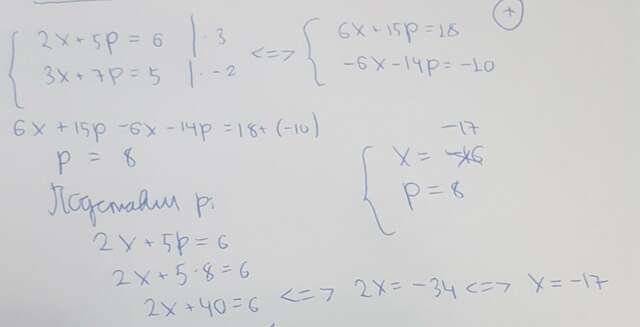 +
2x + 5p = 6 | · 3 <=> 6x + 15p = 18
3x + 7p = 5 | · -2 -6x - 14p = -10
6x + 15p - 6x - 14p = 18 + (-10)
p = 8
Подставим p:
2x + 5p = 6
2x + 5 · 8 = 6
2x + 40 = 6 <=> 2x = -34 <=> x = -17
-17
x =
p = 8